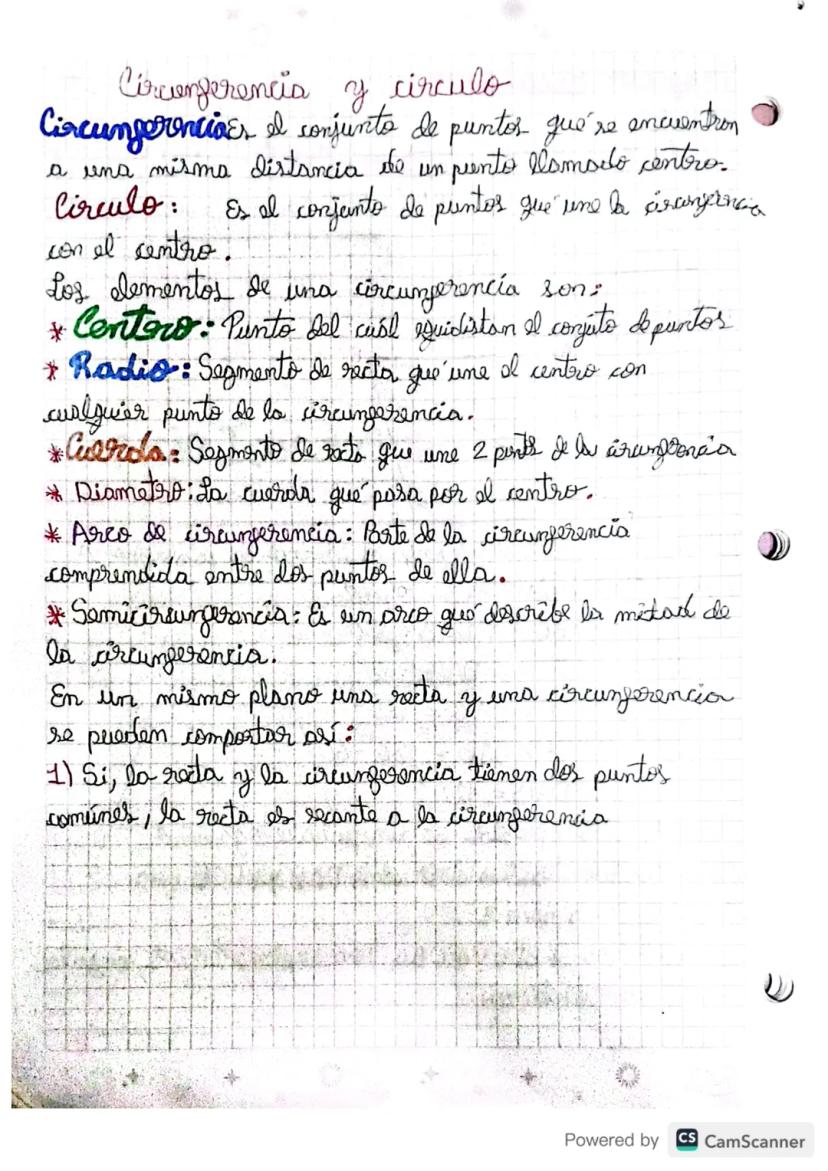 Circunferencia y circulo
Circunferencia Es el conjunto de puntos que se encuentran
a una misma distancia de un punto llamado centro.
Circulo: Es el conjunto de puntos que une la circunferencia
con el centro.
Los elementos de una circunferencia son:
* Centro: Punto del cuál equidistan el conjuto de puntos
* Radio: Segmento de recta que une el centro con
cualquier punto de la circunferencia.
* Cuerda: Segmento de recta que une 2 punts de la circunferencia
* Diametro: La cuerda que pasa por el centro.
* Arco de circunferencia: Parte de la circunferencia
comprendida entre dos puntos de ella.
* Semicircunferencia: Es un arco que describe la mitad de
la circunferencia.
En un mismo plano una recta y una circunferencia
se pueden comportar así:
1) Si, la recta y la circunferencia tienen dos puntos
comúnes, la recta es secante a la circunferencia
Powered by CS CamScanner